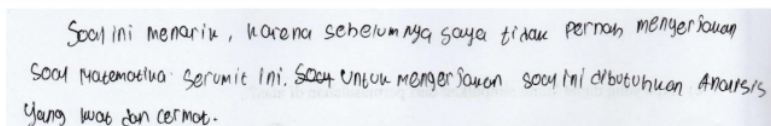 Soal ini menarik, karena sebelumnya saya tidak pernah mengerjakan
soal matematika serumit ini. Untuk mengerjakan soal ini dibutuhkan Analisis
yang kuat dan cermat.